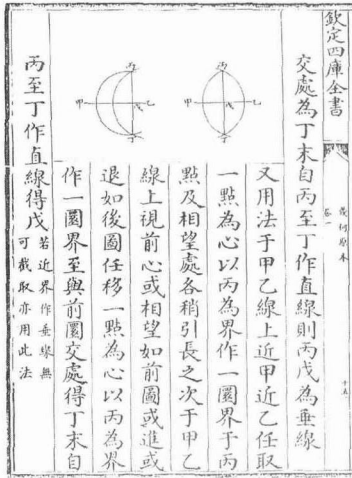 欽定四庫全書
幾何原本
卷一
十五
交處為丁末自丙至丁作直線則丙戊為垂線
又用法于甲乙線上近甲近乙任取
一點為心以丙為界作一圜界于丙
點及相望處各稍引長之次于甲乙
線上視前心或相望如前圖或進或
退如後圖任移一點為心以丙為界
作一圜界至與前圜交處得丁末自
丙至丁作直線得戊若近界作垂線無
可截取亦用此法
丙
甲
乙
戊
丁
丙
甲
乙
戊
丁